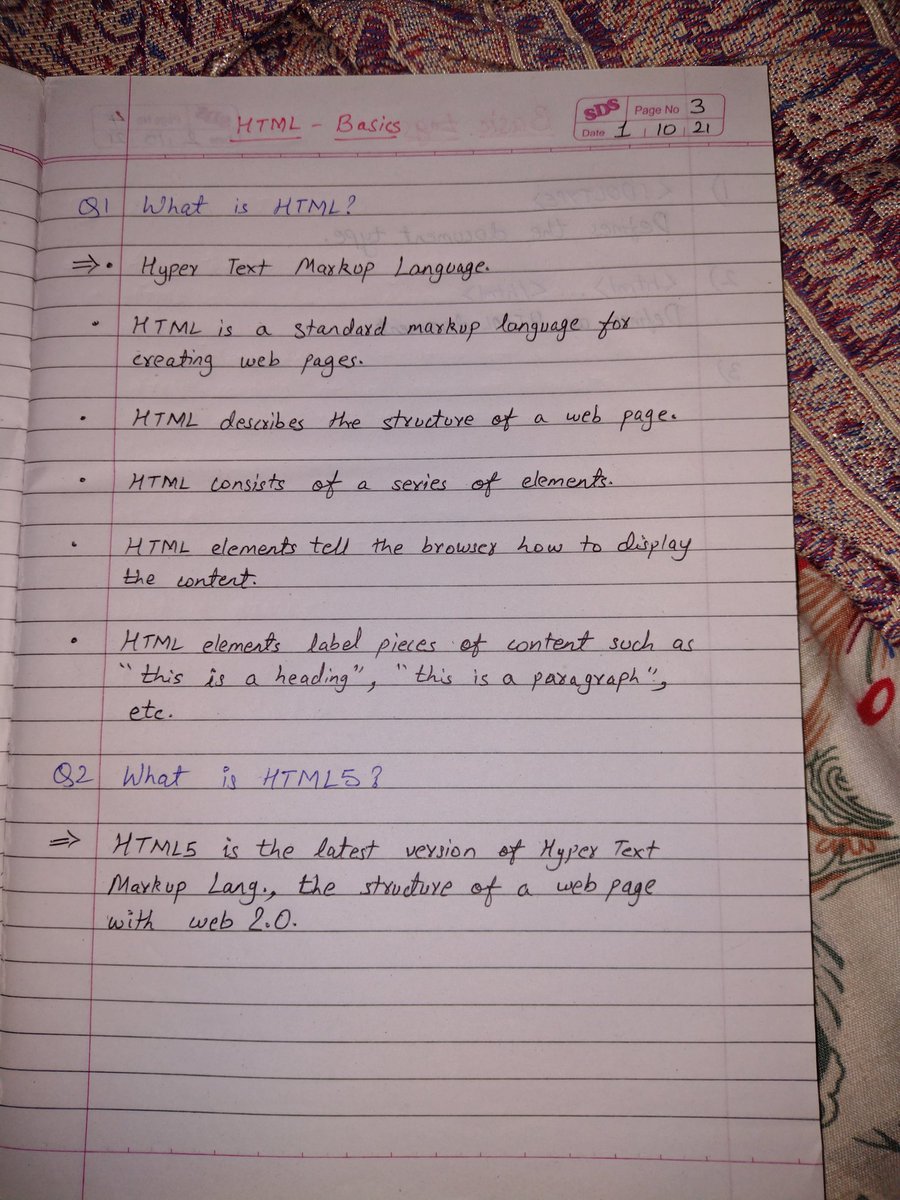 HTML - Basics
SDS Page No 3
Date 1 10 21
Q1 What is HTML?
⇒ • Hyper Text Markup Language.
• HTML is a standard markup language for
creating web pages.
• HTML describes the structure of a web page.
• HTML consists of a series of elements.
• HTML elements tell the browser how to display
the content.
• HTML elements label pieces of content such as
"this is a heading", "this is a paragraph",
etc.
Q2 What is HTML5?
⇒ HTML5 is the latest version of Hyper Text
Markup Lang., the structure of a web page
with web 2.0.